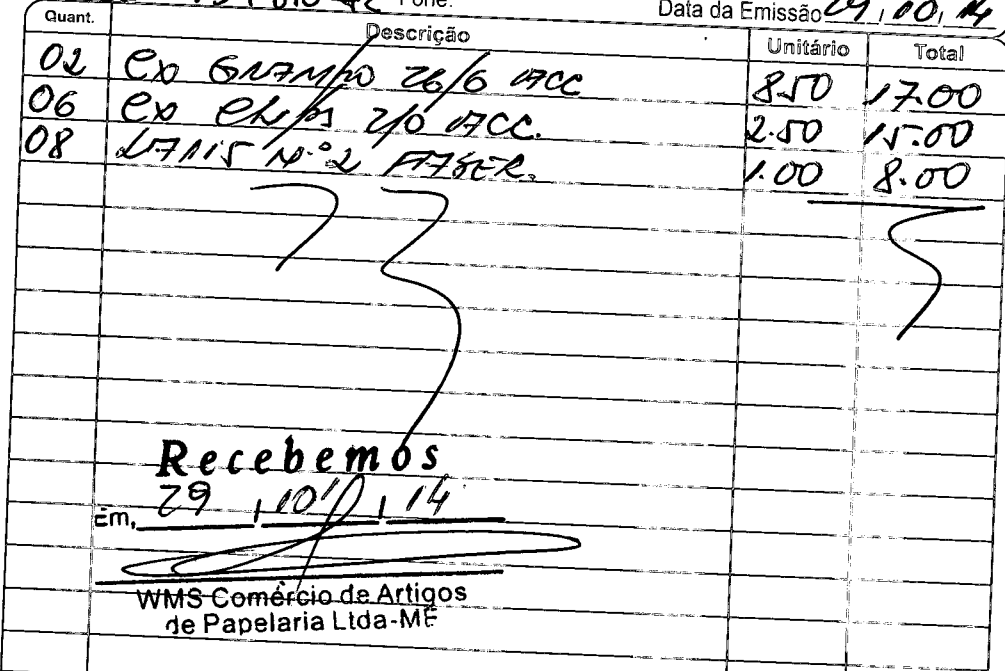 Fone: Data da Emissão 29, 10, 14
Quant. Descrição Unitário Total
02 Cx GRAMPO 26/6 ACC 8.50 17.00
06 Cx Clips 2/0 ACC. 2.50 15.00
08 LAPIS Nº2 FABER. 1.00 8.00
Recebemos
Em, 29 / 10 / 14
WMS Comércio de Artigos
de Papelaria Ltda-ME